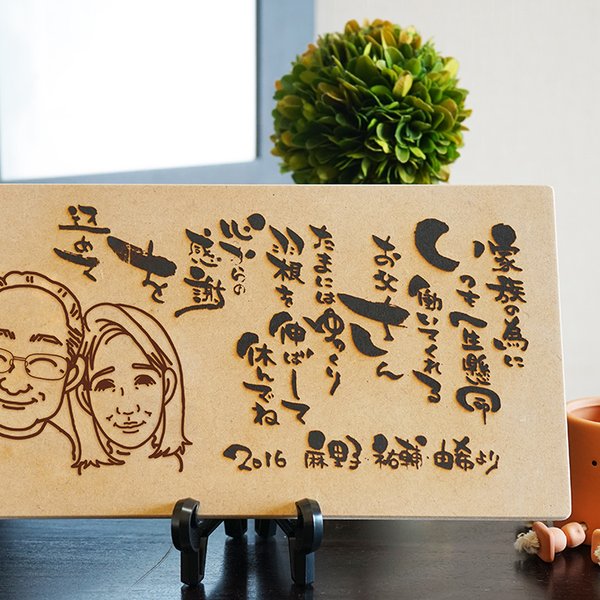 家族の為に
いつも一生懸命
働いてくれる
お父さん
たまにはゆっくり
羽根を伸ばして
休んでね
心からの
感謝
を
込めて
2016 麻里子・祐輔・由希より